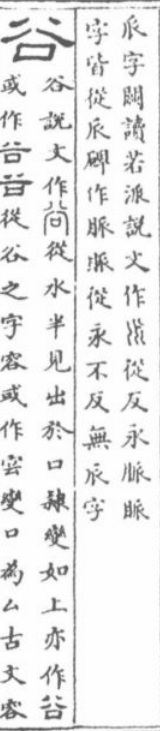 𠂢字闕讀若派說文作從反永脈眽
字皆從𠂢碑作脈從永不反無𠂢字
谷
谷說文作從水半見出於口隸變如上亦作
或作從谷之字容或作變口為厶古文容